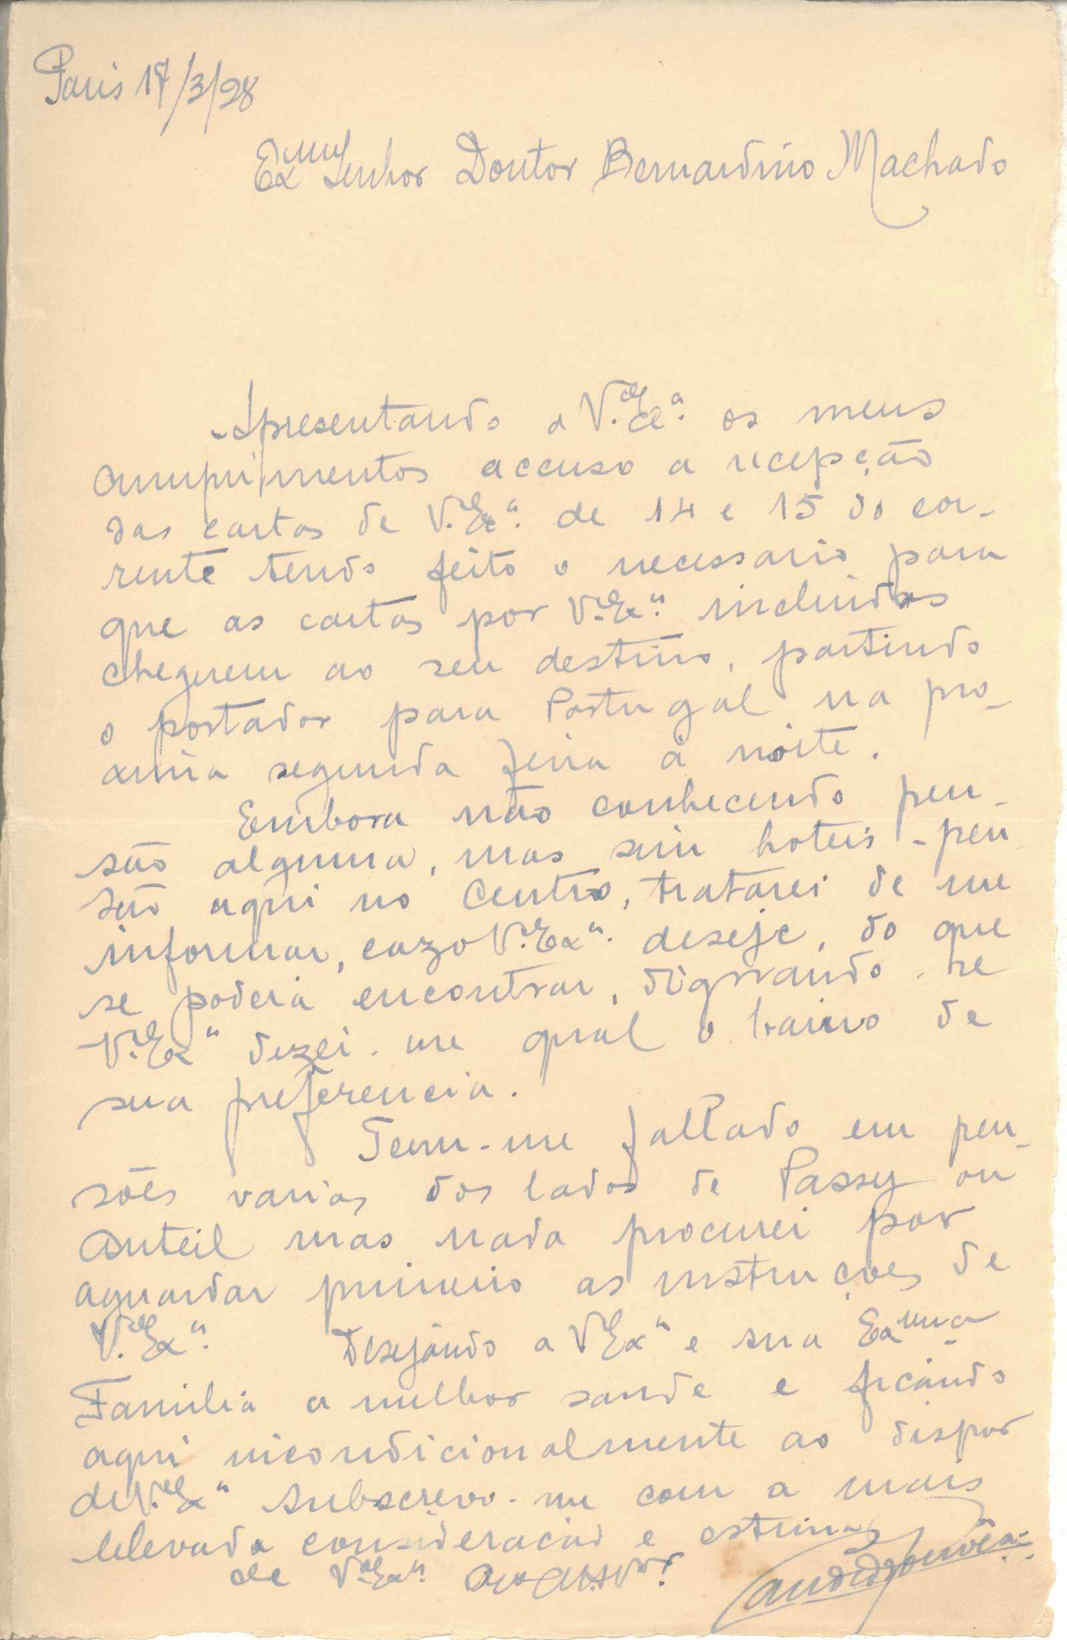 Paris 17/3/28
Exmo Senhor Doutor Bernardino Machado
Apresentando a V. Exª. os meus
cumprimentos accuso a recepção
das cartas de V. Exª. de 14 e 15 do cor-
rente tendo feito o necessario para
que as cartas por V. Exª incluidas
cheguem ao seu destino, partindo
o portador para Portugal na pro-
xima segunda feira á noite.
Embora não conhecendo pen-
são alguma, mas sim hoteis-pen
são aqui no Centro, tratarei de me
informar, cazo V. Exª. deseje, do que
se poderá encontrar, dignando-se
V. Exª dizer-me qual o bairro de
sua preferencia.
Tem-me fallado em pen-
sões varias dos lados de Passy ou
Auteil mas nada procurei por
aguardar primeiro as instrucções de
V. Exª. Desejando a V Exª e sua Exma
Familia a melhor saude e ficando
aqui incondicionalmente ao dispor
de V. Exª subscrevo-me com a mais
elevada consideração e estima
de V. Exª.